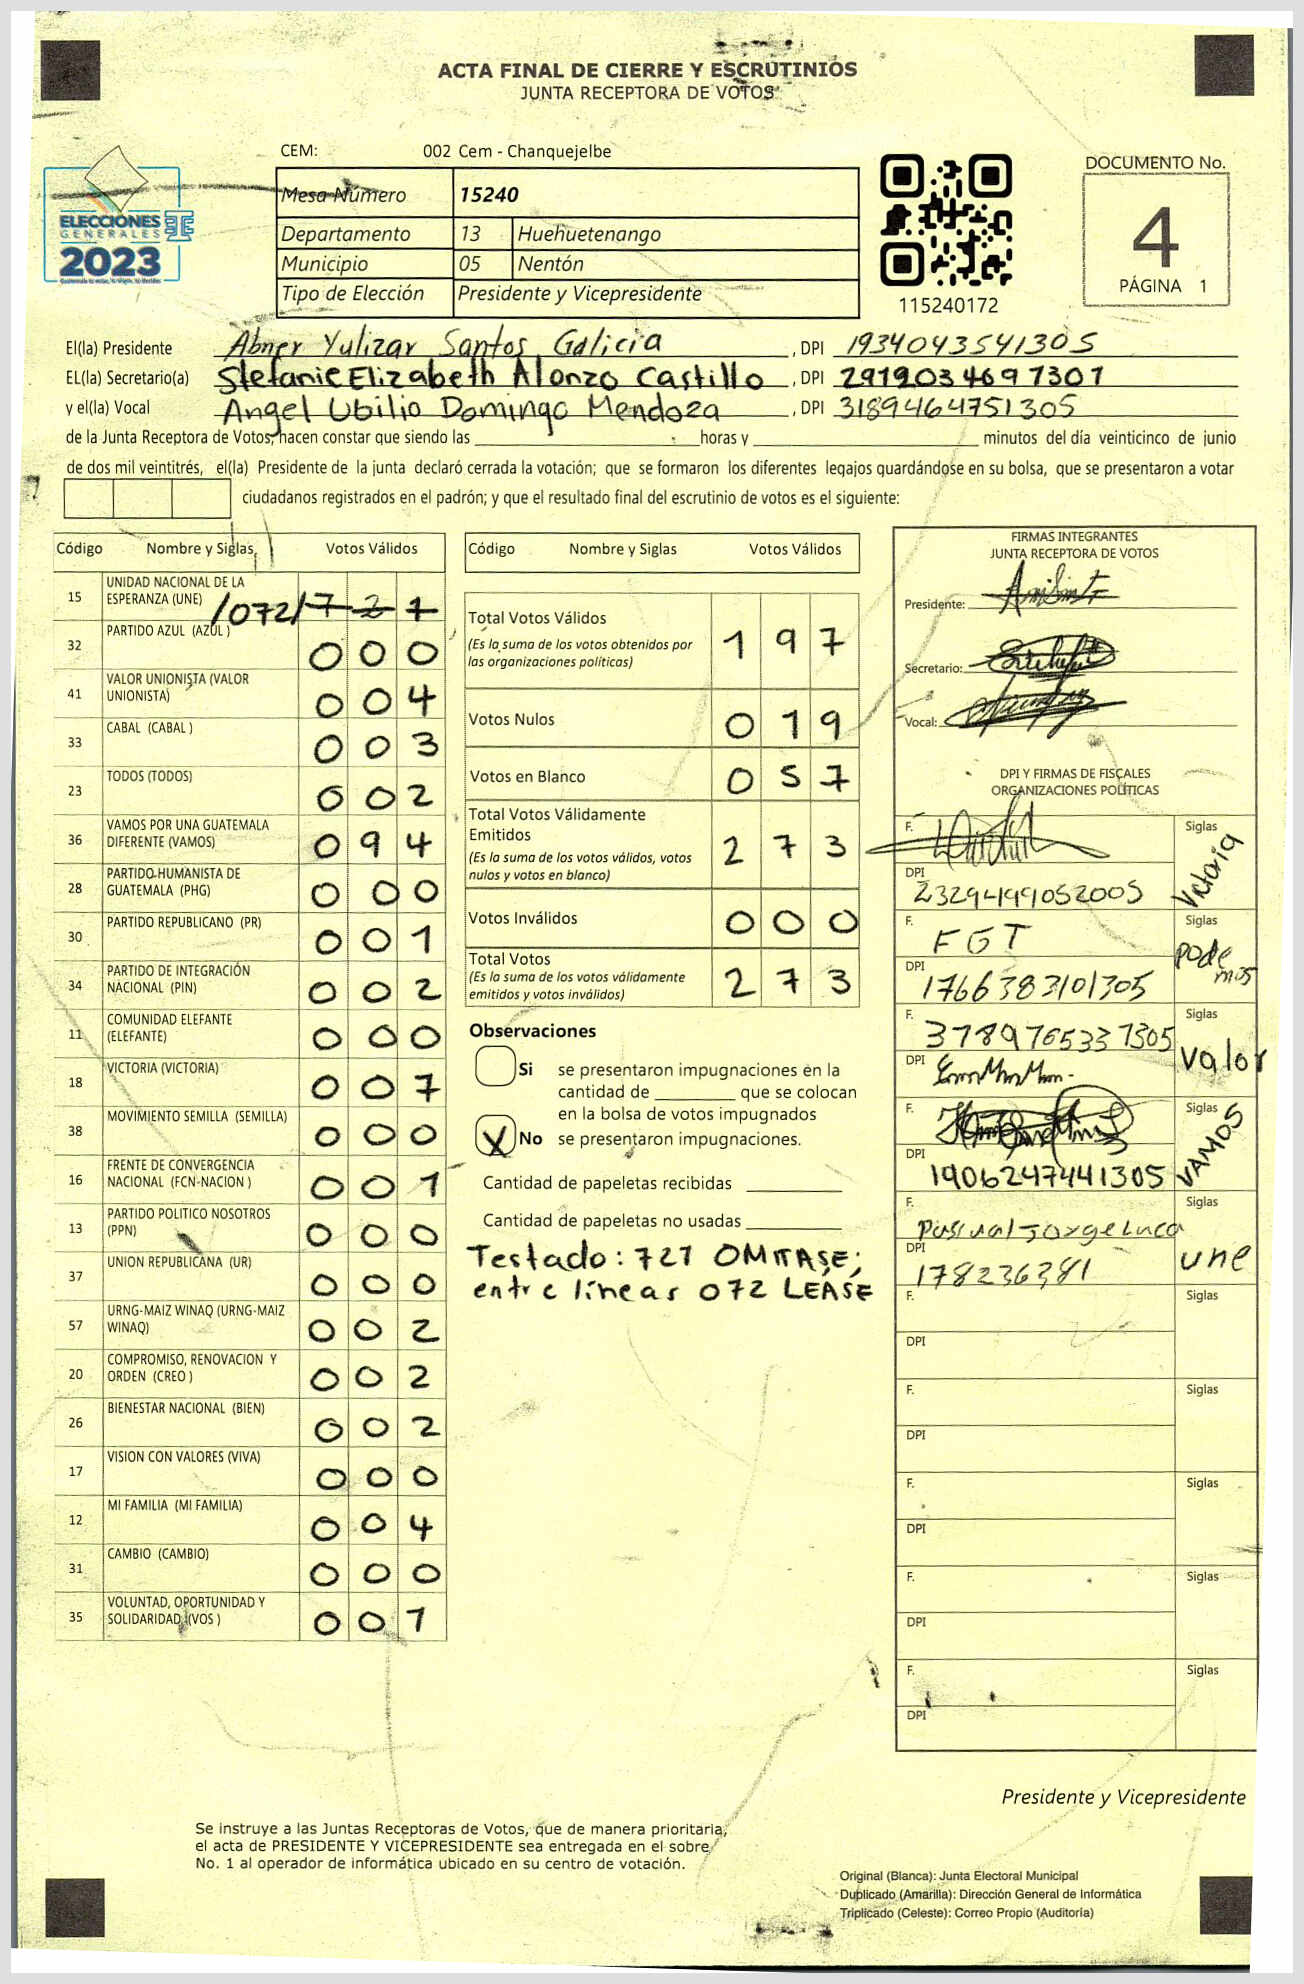 ACTA FINAL DE CIERRE Y ESCRUTINIOS
JUNTA RECEPTORA DE VOTOS
CEM: 002 Cem - Chanquejelbe
Mesa Número 15240
Departamento 13 Huehuetenango
Municipio 05 Nentón
Tipo de Elección Presidente y Vicepresidente
ELECCIONES
GENERALES
2023
115240172
DOCUMENTO No.
4
PÁGINA 1
El(la) Presidente Abner Yulizar Santos Galicia, DPI 1934043541305
EL(la) Secretario(a) Stefanie Elizabeth Alonzo Castillo, DPI 2919034697301
y el(la) Vocal Angel Ubilio Domingo Mendoza, DPI 3189464751305
de la Junta Receptora de Votos, hacen constar que siendo las horas y minutos del día veinticinco de junio
de dos mil veintitrés, el(la) Presidente de la junta declaró cerrada la votación; que se formaron los diferentes legajos guardándose en su bolsa, que se presentaron a votar
ciudadanos registrados en el padrón; y que el resultado final del escrutinio de votos es el siguiente:
Código Nombre y Siglas Votos Válidos
15 UNIDAD NACIONAL DE LA ESPERANZA (UNE) /072/ 721
32 PARTIDO AZUL (AZUL ) 000
41 VALOR UNIONISTA (VALOR UNIONISTA) 004
33 CABAL (CABAL ) 003
23 TODOS (TODOS) 002
36 VAMOS POR UNA GUATEMALA DIFERENTE (VAMOS) 094
28 PARTIDO HUMANISTA DE GUATEMALA (PHG) 000
30 PARTIDO REPUBLICANO (PR) 001
34 PARTIDO DE INTEGRACIÓN NACIONAL (PIN) 002
11 COMUNIDAD ELEFANTE (ELEFANTE) 000
18 VICTORIA (VICTORIA) 007
38 MOVIMIENTO SEMILLA (SEMILLA) 000
16 FRENTE DE CONVERGENCIA NACIONAL (FCN-NACION ) 001
13 PARTIDO POLITICO NOSOTROS (PPN) 000
37 UNION REPUBLICANA (UR) 000
57 URNG-MAIZ WINAQ (URNG-MAIZ WINAQ) 002
20 COMPROMISO, RENOVACION Y ORDEN (CREO ) 002
26 BIENESTAR NACIONAL (BIEN) 002
17 VISION CON VALORES (VIVA) 000
12 MI FAMILIA (MI FAMILIA) 004
31 CAMBIO (CAMBIO) 000
35 VOLUNTAD, OPORTUNIDAD Y SOLIDARIDAD (VOS ) 001
Código Nombre y Siglas Votos Válidos
Total Votos Válidos 197
(Es la suma de los votos obtenidos por
las organizaciones políticas)
Votos Nulos 019
Votos en Blanco 057
Total Votos Válidamente
Emitidos 273
(Es la suma de los votos válidos, votos
nulos y votos en blanco)
Votos Inválidos 000
Total Votos 273
(Es la suma de los votos válidamente
emitidos y votos inválidos)
Observaciones
Si se presentaron impugnaciones en la
cantidad de que se colocan
en la bolsa de votos impugnados
X No se presentaron impugnaciones.
Cantidad de papeletas recibidas
Cantidad de papeletas no usadas
Testado: 721 OMITASE;
entre líneas 072 LEASE
FIRMAS INTEGRANTES
JUNTA RECEPTORA DE VOTOS
Presidente:
Secretario:
Vocal:
DPI Y FIRMAS DE FISCALES
ORGANIZACIONES POLÍTICAS
F. Siglas Victoria
DPI 2329499052005
F. FGT Siglas podemos
DPI 1766383101305
F. 3789765337305 Siglas valor
DPI
F. Siglas VAMOS
DPI 1906247441305
F. Pascual Jorge Luca Siglas une
DPI 178236381
F. Siglas
DPI
F. Siglas
DPI
F. Siglas
DPI
F. Siglas
DPI
F. Siglas
DPI
Presidente y Vicepresidente
Se instruye a las Juntas Receptoras de Votos, que de manera prioritaria,
el acta de PRESIDENTE Y VICEPRESIDENTE sea entregada en el sobre
No. 1 al operador de informática ubicado en su centro de votación.
Original (Blanca): Junta Electoral Municipal
Duplicado (Amarilla): Dirección General de Informática
Triplicado (Celeste): Correo Propio (Auditoría)